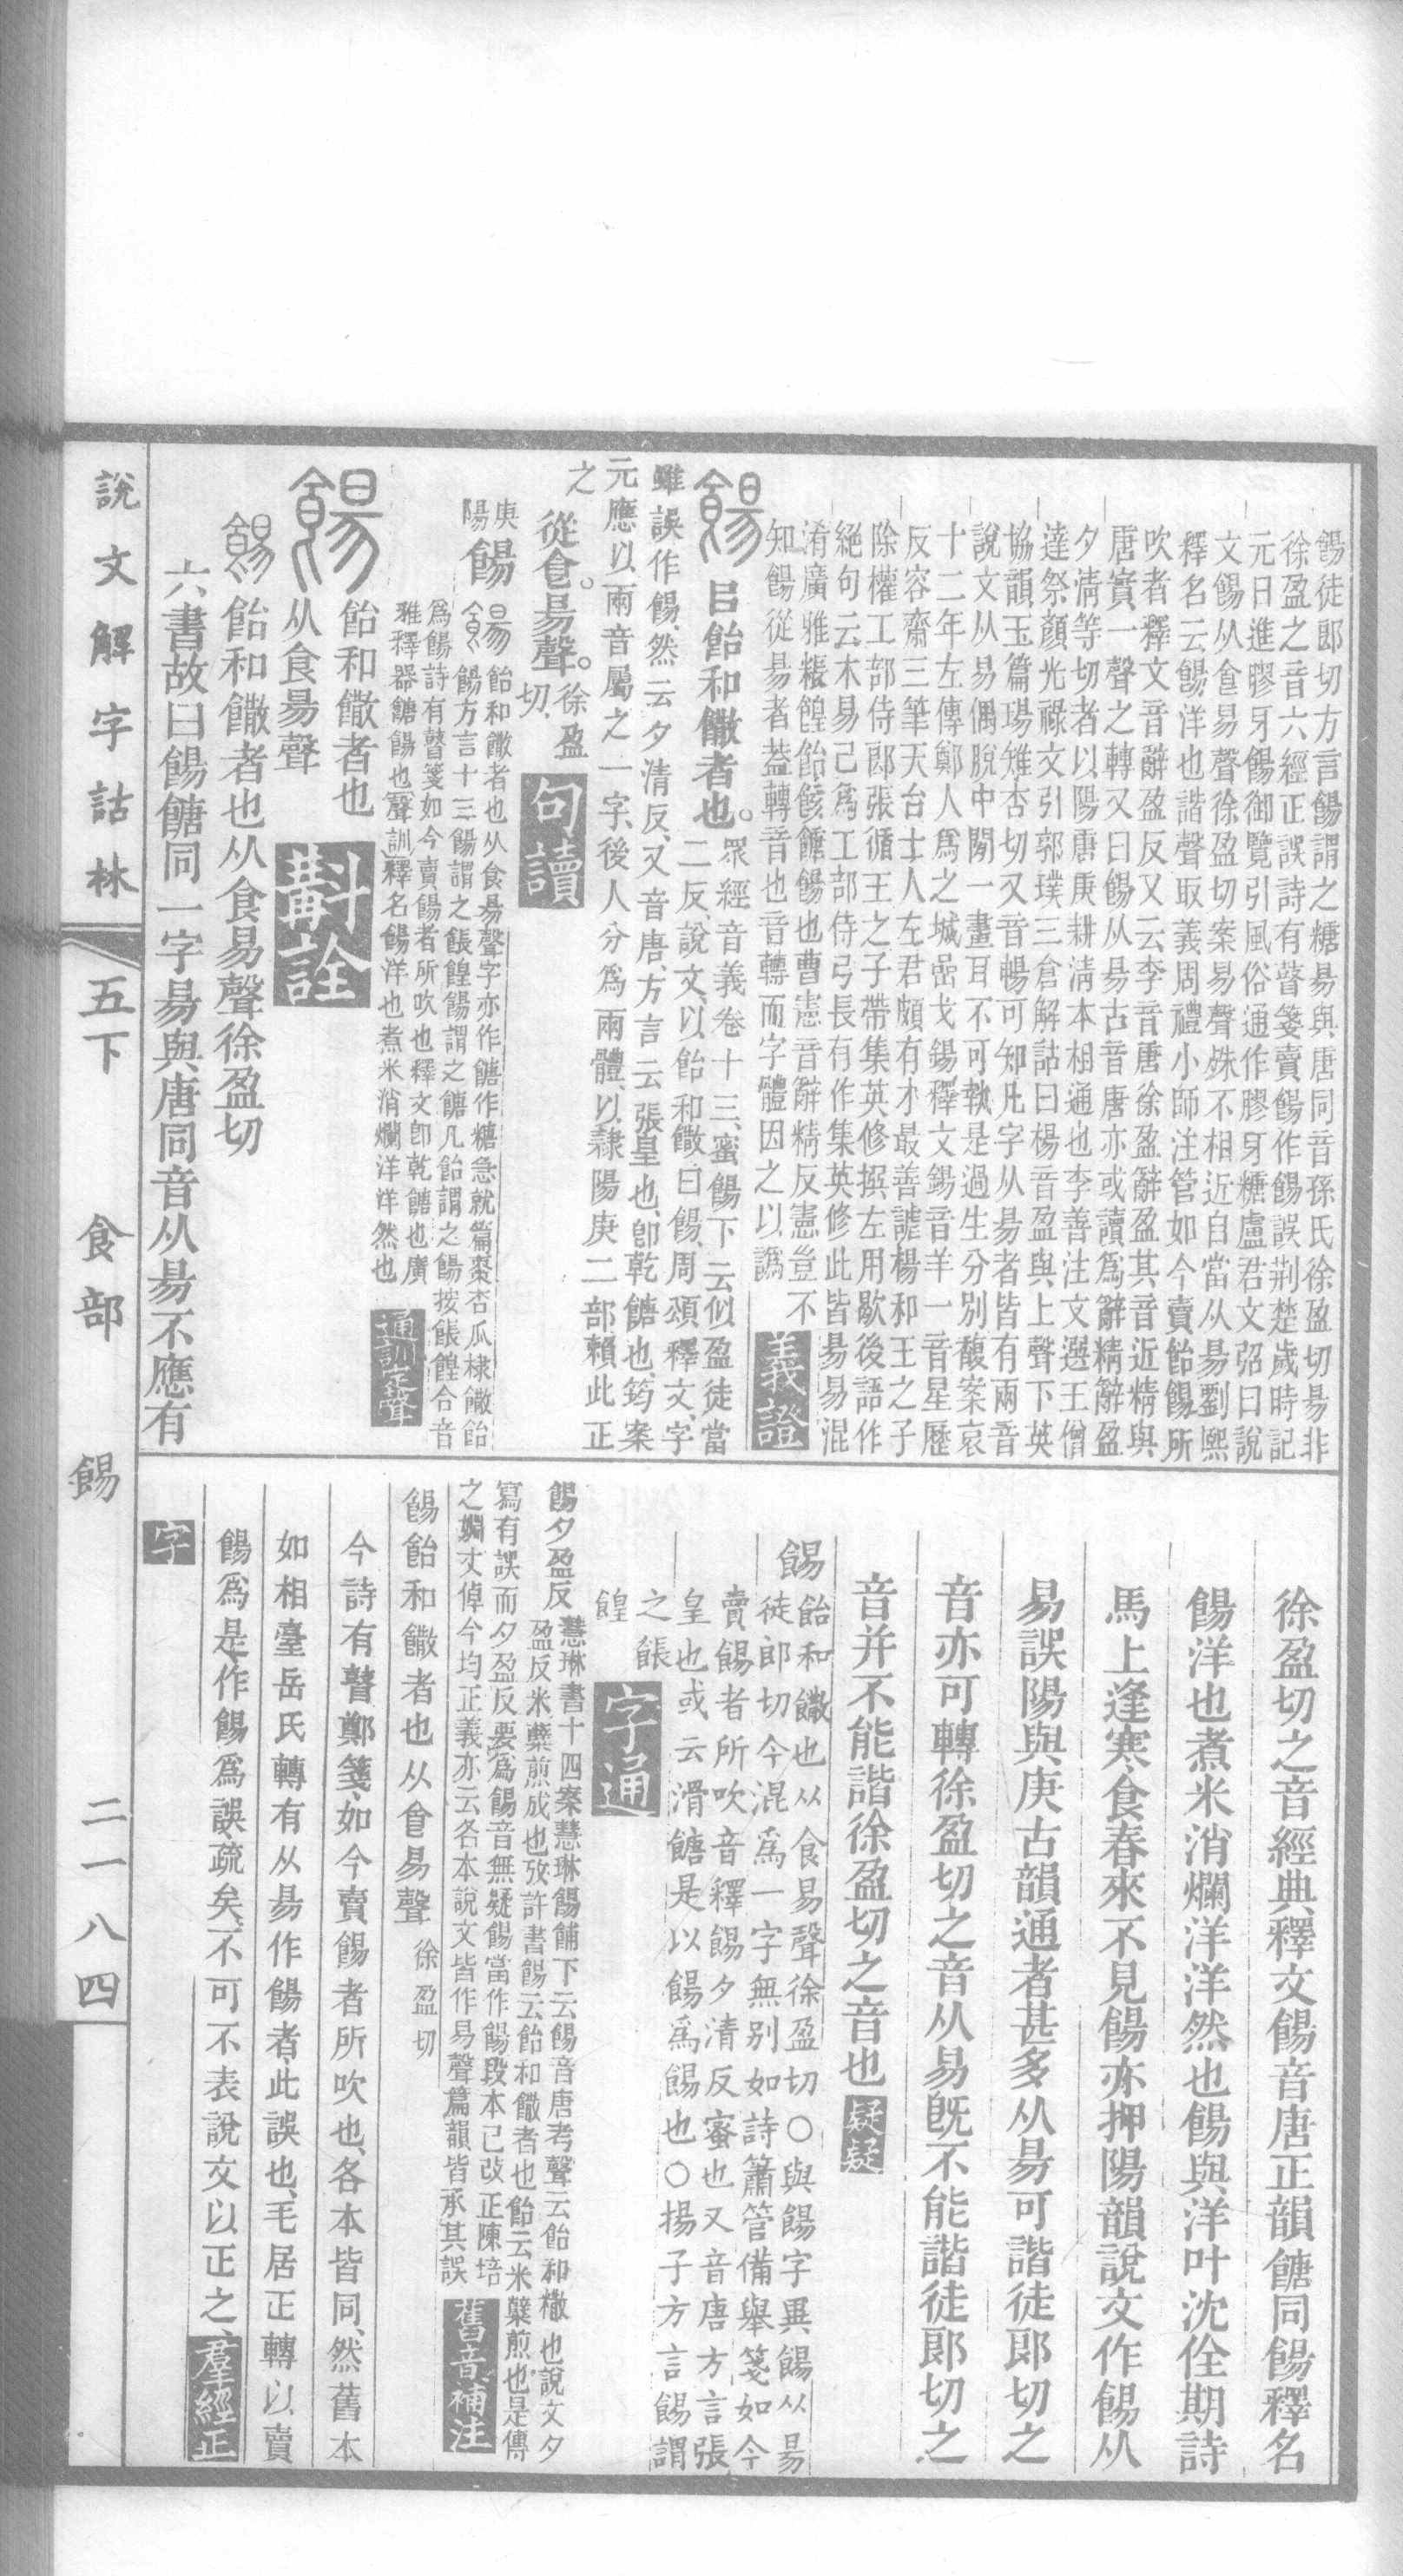 餳徒郎切方言餳謂之糖昜與唐同音孫氏徐盈切昜非
徐盈之音六經正誤詩有瞽箋賣餳作餳誤荆楚歲時記
元日進膠牙餳御覽引風俗通作膠牙糖盧君文弨曰說
文餳从食易聲徐盈切案易聲殊不相近白當从昜劉熙
釋名云餳洋也諧聲取義周禮小師注管如今賣飴餳所
吹者釋文音辭盈反又云李音唐徐盈辭盈其音近精與
唐實一聲之轉又曰餳从昜古音唐亦或讀爲辭精辭盈
夕淸等切者以陽唐庚耕淸本相通也李善注文選王僧
達祭顏光祿文引郭璞三倉解詁曰楊音盈與上聲下英
協韻玉篇瑒雉杏切又音暢可知凡字从昜者皆有兩音
說文从易偶脫中閒一畫耳不可執是過生分別馥案哀
十二年左傳鄭人爲之城嵒戈錫釋文錫音羊一音星歷
反容齋三筆天台士人左君頗有才最善謔楊和王之子
除權工部侍郎張循王之子帶集英修撰左用歇後語作
絕句云木易己爲工部侍弓長有作集英修此皆昜易混
淆廣雅粻餭飴餩餹餳也曹憲音辭精反憲豈不
知餳從昜者葢轉音也音轉而字體因之以譌
義證
餳
㠯飴和饊者也。
眾經音義卷十三、蜜餳下云似盈徒當
二反、說文、以飴和饊曰餳、周頌釋文、字
雖誤作餳、然云夕清反、又音唐、方言云張皇也、卽乾餹也、筠案
元應以兩音屬之一字、後人分爲兩體、以隸陽庚二部賴此正
之
從𠊊。昜聲。
徐盈
切、
句讀
庚
陽
餳
餳飴和饊者也从食昜聲字亦作餹作糖急就篇棗杏瓜棣饊飴
餳方言十三餳謂之餦餭餳謂之餹凡飴謂之餳按餦餭合音
爲餳詩有瞽箋如今賣餳者所吹也釋文卽乾餹也廣
雅釋器餹餳也聲訓釋名餳洋也煮米消爛洋洋然也
通訓定聲
餳
飴和饊者也
从食昜聲
斠詮
餳飴和饊者也从食易聲徐盈切
六書故曰餳餹同一字昜與唐同音从易不應有
徐盈切之音經典釋文餳音唐正韻餹同餳釋名
餳洋也煮米消爛洋洋然也餳與洋叶沈佺期詩
馬上逢寒食春來不見餳亦押陽韻說文作餳从
易誤陽與庚古韻通者甚多从昜可諧徒郎切之
音亦可轉徐盈切之音从易旣不能諧徒郎切之
音并不能諧徐盈切之音也
疑疑
餳
飴和饊也从食易聲徐盈切○與餳字異餳从昜
徒郎切今混爲一字無別如詩簫管備舉箋如今
賣餳者所吹音釋餳夕清反蜜也又音唐方言張
皇也或云滑餹是以餳爲餳也○揚子方言餳謂
之餦
餭
字通
餳夕盈反
慧琳書十四案慧琳餳餔下云餳音唐考聲云飴和橵也說文夕
盈反米櫱煎成也攷許書餳云飴和饊者也飴云米櫱煎也是傳
寫有誤而夕盈反要爲餳音無疑餳當作餳段本已改正陳培
之嫻丈倬今均正義亦云各本說文皆作易聲篇韻皆承其誤
舊音補注
餳飴和饊者也从𠊊易聲
徐盈切
今詩有瞽鄭箋、如今賣餳者所吹也、各本皆同、然舊本
如相臺岳氏轉有从昜作餳者、此誤也、毛居正轉以賣
餳爲是、作餳爲誤、疏矣、不可不表說文以正之、
羣經正
字
說文解字詁林
五下
食部
餳
二一八四